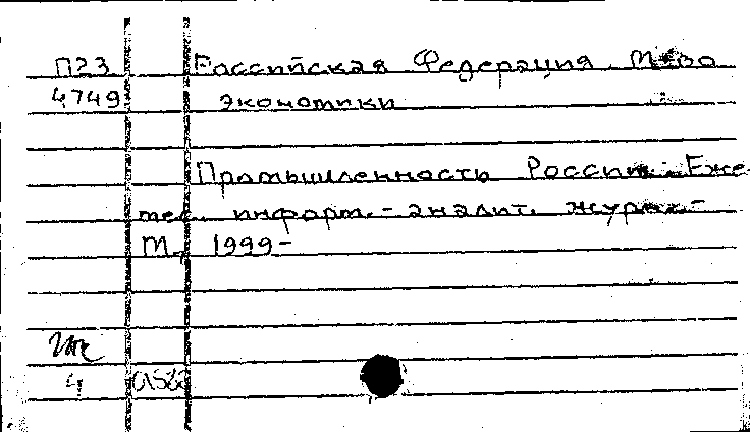 П23 Российская Федерация. М-во
4749 экономики
Промышленность России: Еже
мес. информ.- аналит. журнал-
М., 1999-
4